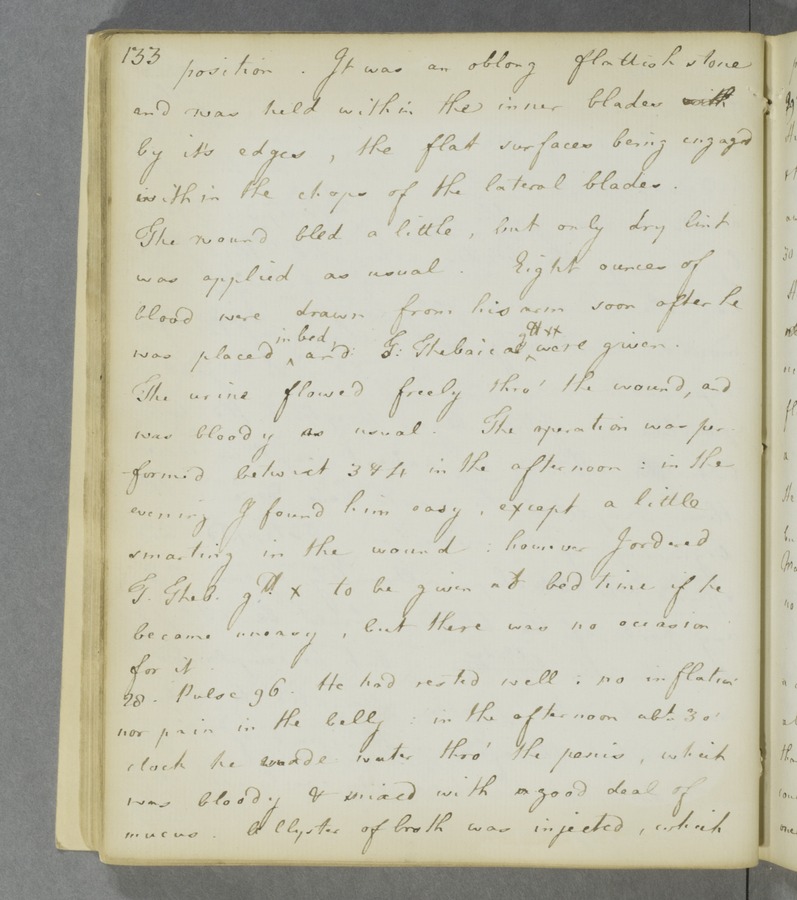 133
position . It was an oblong flattish stone
and was held within the inner blades with
by it's edges , the flat surfaces being engaged
within the chops of the lateral blades .
The wound bled a little , but only dry lint
was applied as usual . Eight ounces of
blood were drawn from his arm soon after he
was placed in bed, and T: Thebaicae gtt xx were given .
The urine flowed freely thro' the wound, and
was bloody as usual . The operation was per-
-formed betwixt 3 & 4 in the afternoon : in the
evening I found him easy , except a little
smarting in the wound : however I ordered
T. Theb. gtt x to be given at bed time if he
became uneasy , but there was no occasion
for it .
28. Pulse 96. He had rested well : no inflation
nor pain in the belly : in the afternoon abt. 3 o'
clock he made water thro' the penis , which
was bloody & mixed with a good deal of
mucus . A Clyster of broth was injected , which